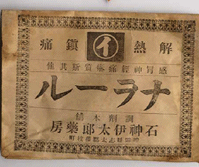 解熱 イ 鎮痛
感冒神經痛僂麻質斯其他
ナラール
調劑本舖
石神伊太郎藥房